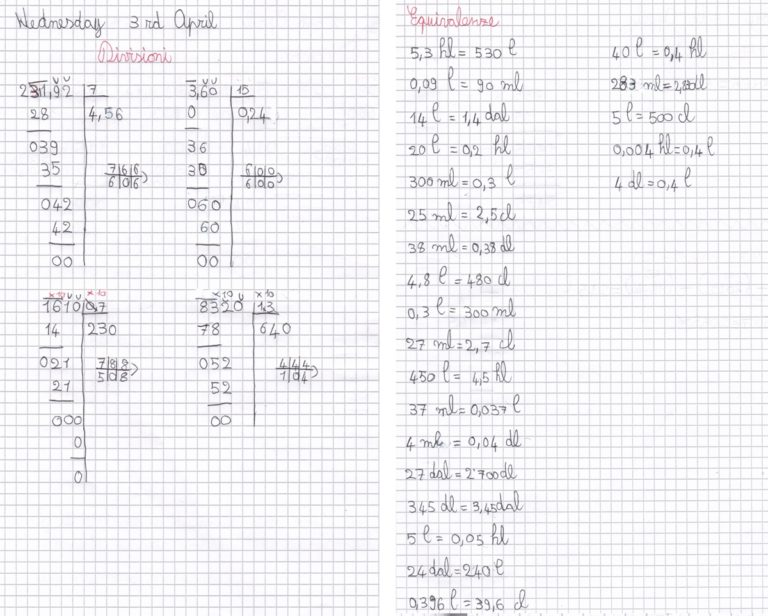 Wednesday 3rd April
Divisioni
31,92 7
28 4,56
039
35 7|6|6
6|0|6
042
42
00
3,60 15
0 0,24
36
30 6|0|0
6|0|0
060
60
00
x10 x10
1610 0,7
14 230
021 7|8|8
21 5|0|8
000
0
0
x10 x10
8320 1,3
78 640
052 4|4|4
52 1|0|4
00
Equivalenze
5,3 hl = 530 l
0,09 l = 90 ml
14 l = 1,4 dal
20 l = 0,2 hl
300 ml = 0,3 l
25 ml = 2,5 cl
38 ml = 0,38 dl
4,8 l = 480 cl
0,3 l = 300 ml
27 ml = 2,7 cl
450 l = 4,5 hl
37 ml = 0,037 l
4 ml = 0,04 dl
27 dal = 2700 dl
345 dl = 3,45 dal
5 l = 0,05 hl
24 dal = 240 l
0,396 l = 39,6 cl
40 l = 0,4 hl
283 ml = 2,83 dl
5 l = 500 cl
0,004 hl = 0,4 l
4 dl = 0,4 l